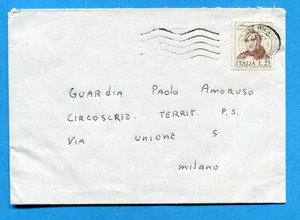 ITALIA L. 25
GUARDIA PAOLO AMORUSO
CIRCOSCRIZ. TERRIT. P.S.
VIA UNIONE 5
MILANO